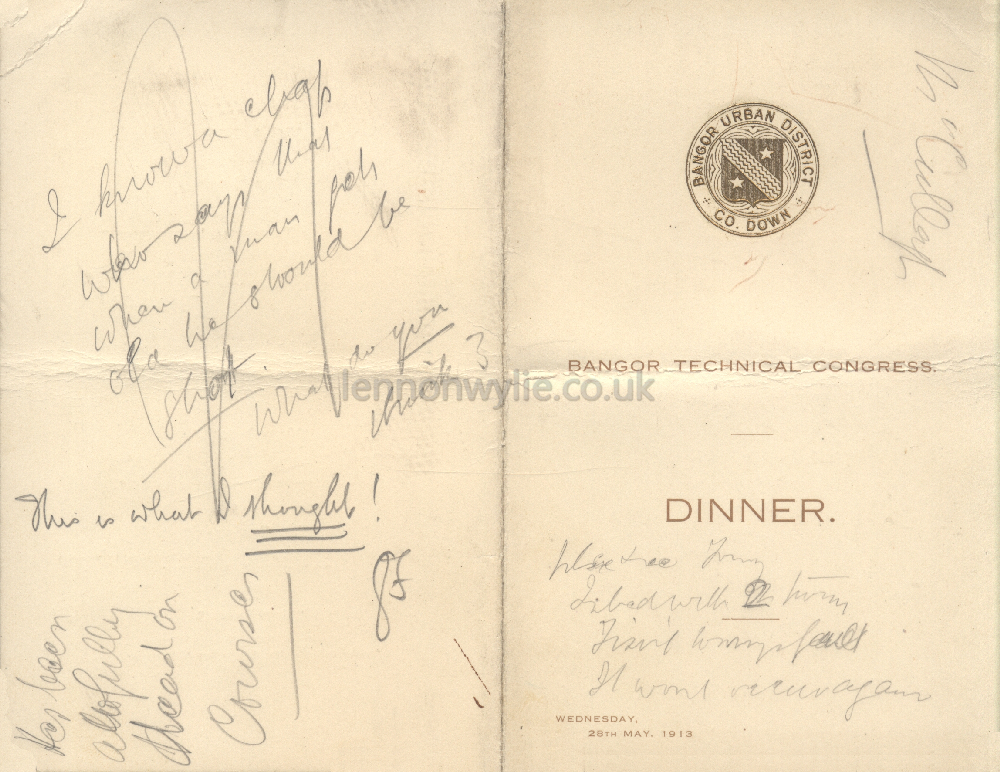 I know a chap
who says that
when a man gets
old he should be
shot. What do you
think?
This is what I thought!
JF
Has been
awfully
steady on
Courses
McCullagh
BANGOR URBAN DISTRICT
CO. DOWN
BANGOR TECHNICAL CONGRESS.
lennonwylie.co.uk
DINNER.
2
It wont occur again
WEDNESDAY,
28TH MAY, 1913